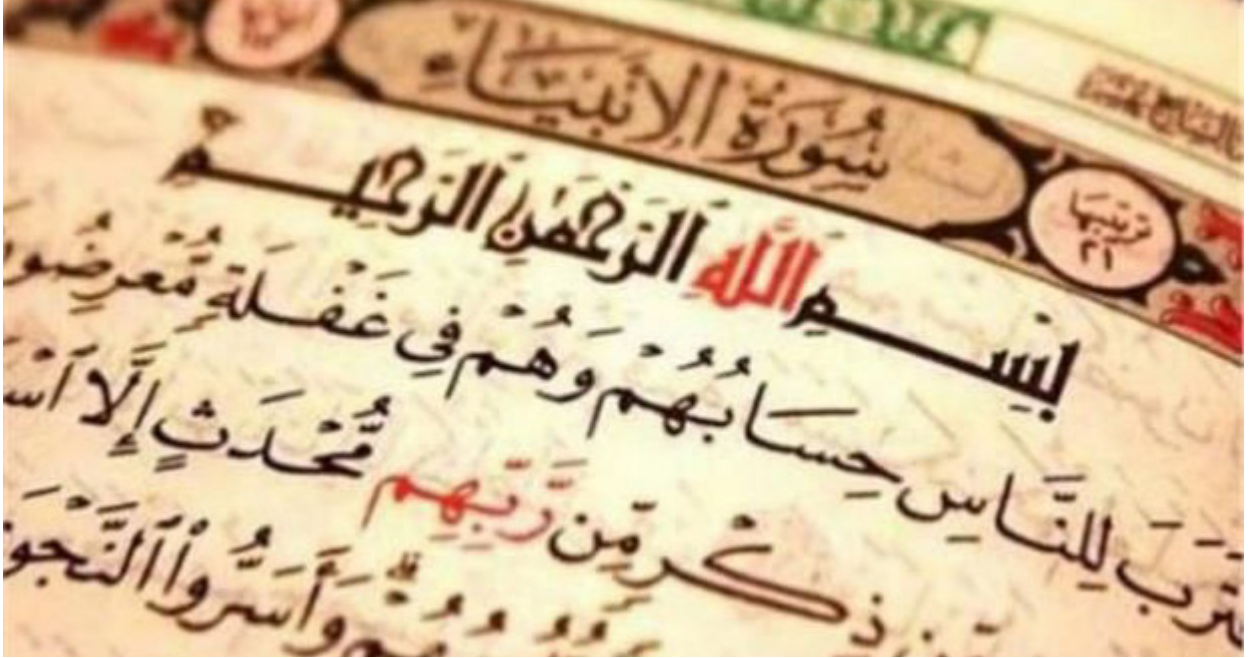 سُورَةُ الأَنبِيَاءِ
تَرتيبُهَا ٢١
بِسْمِ اللَّهِ الرَّحْمَٰنِ الرَّحِيمِ
لِلنَّاسِ حِسَابُهُمْ وَهُمْ فِي غَفْلَةٍ مُّعْرِضُو
ذِكْرٍ مِّن رَّبِّهِم مُّحْدَثٍ إِلَّا
وَأَسَرُّوا۟ ٱلنَّجْوَ